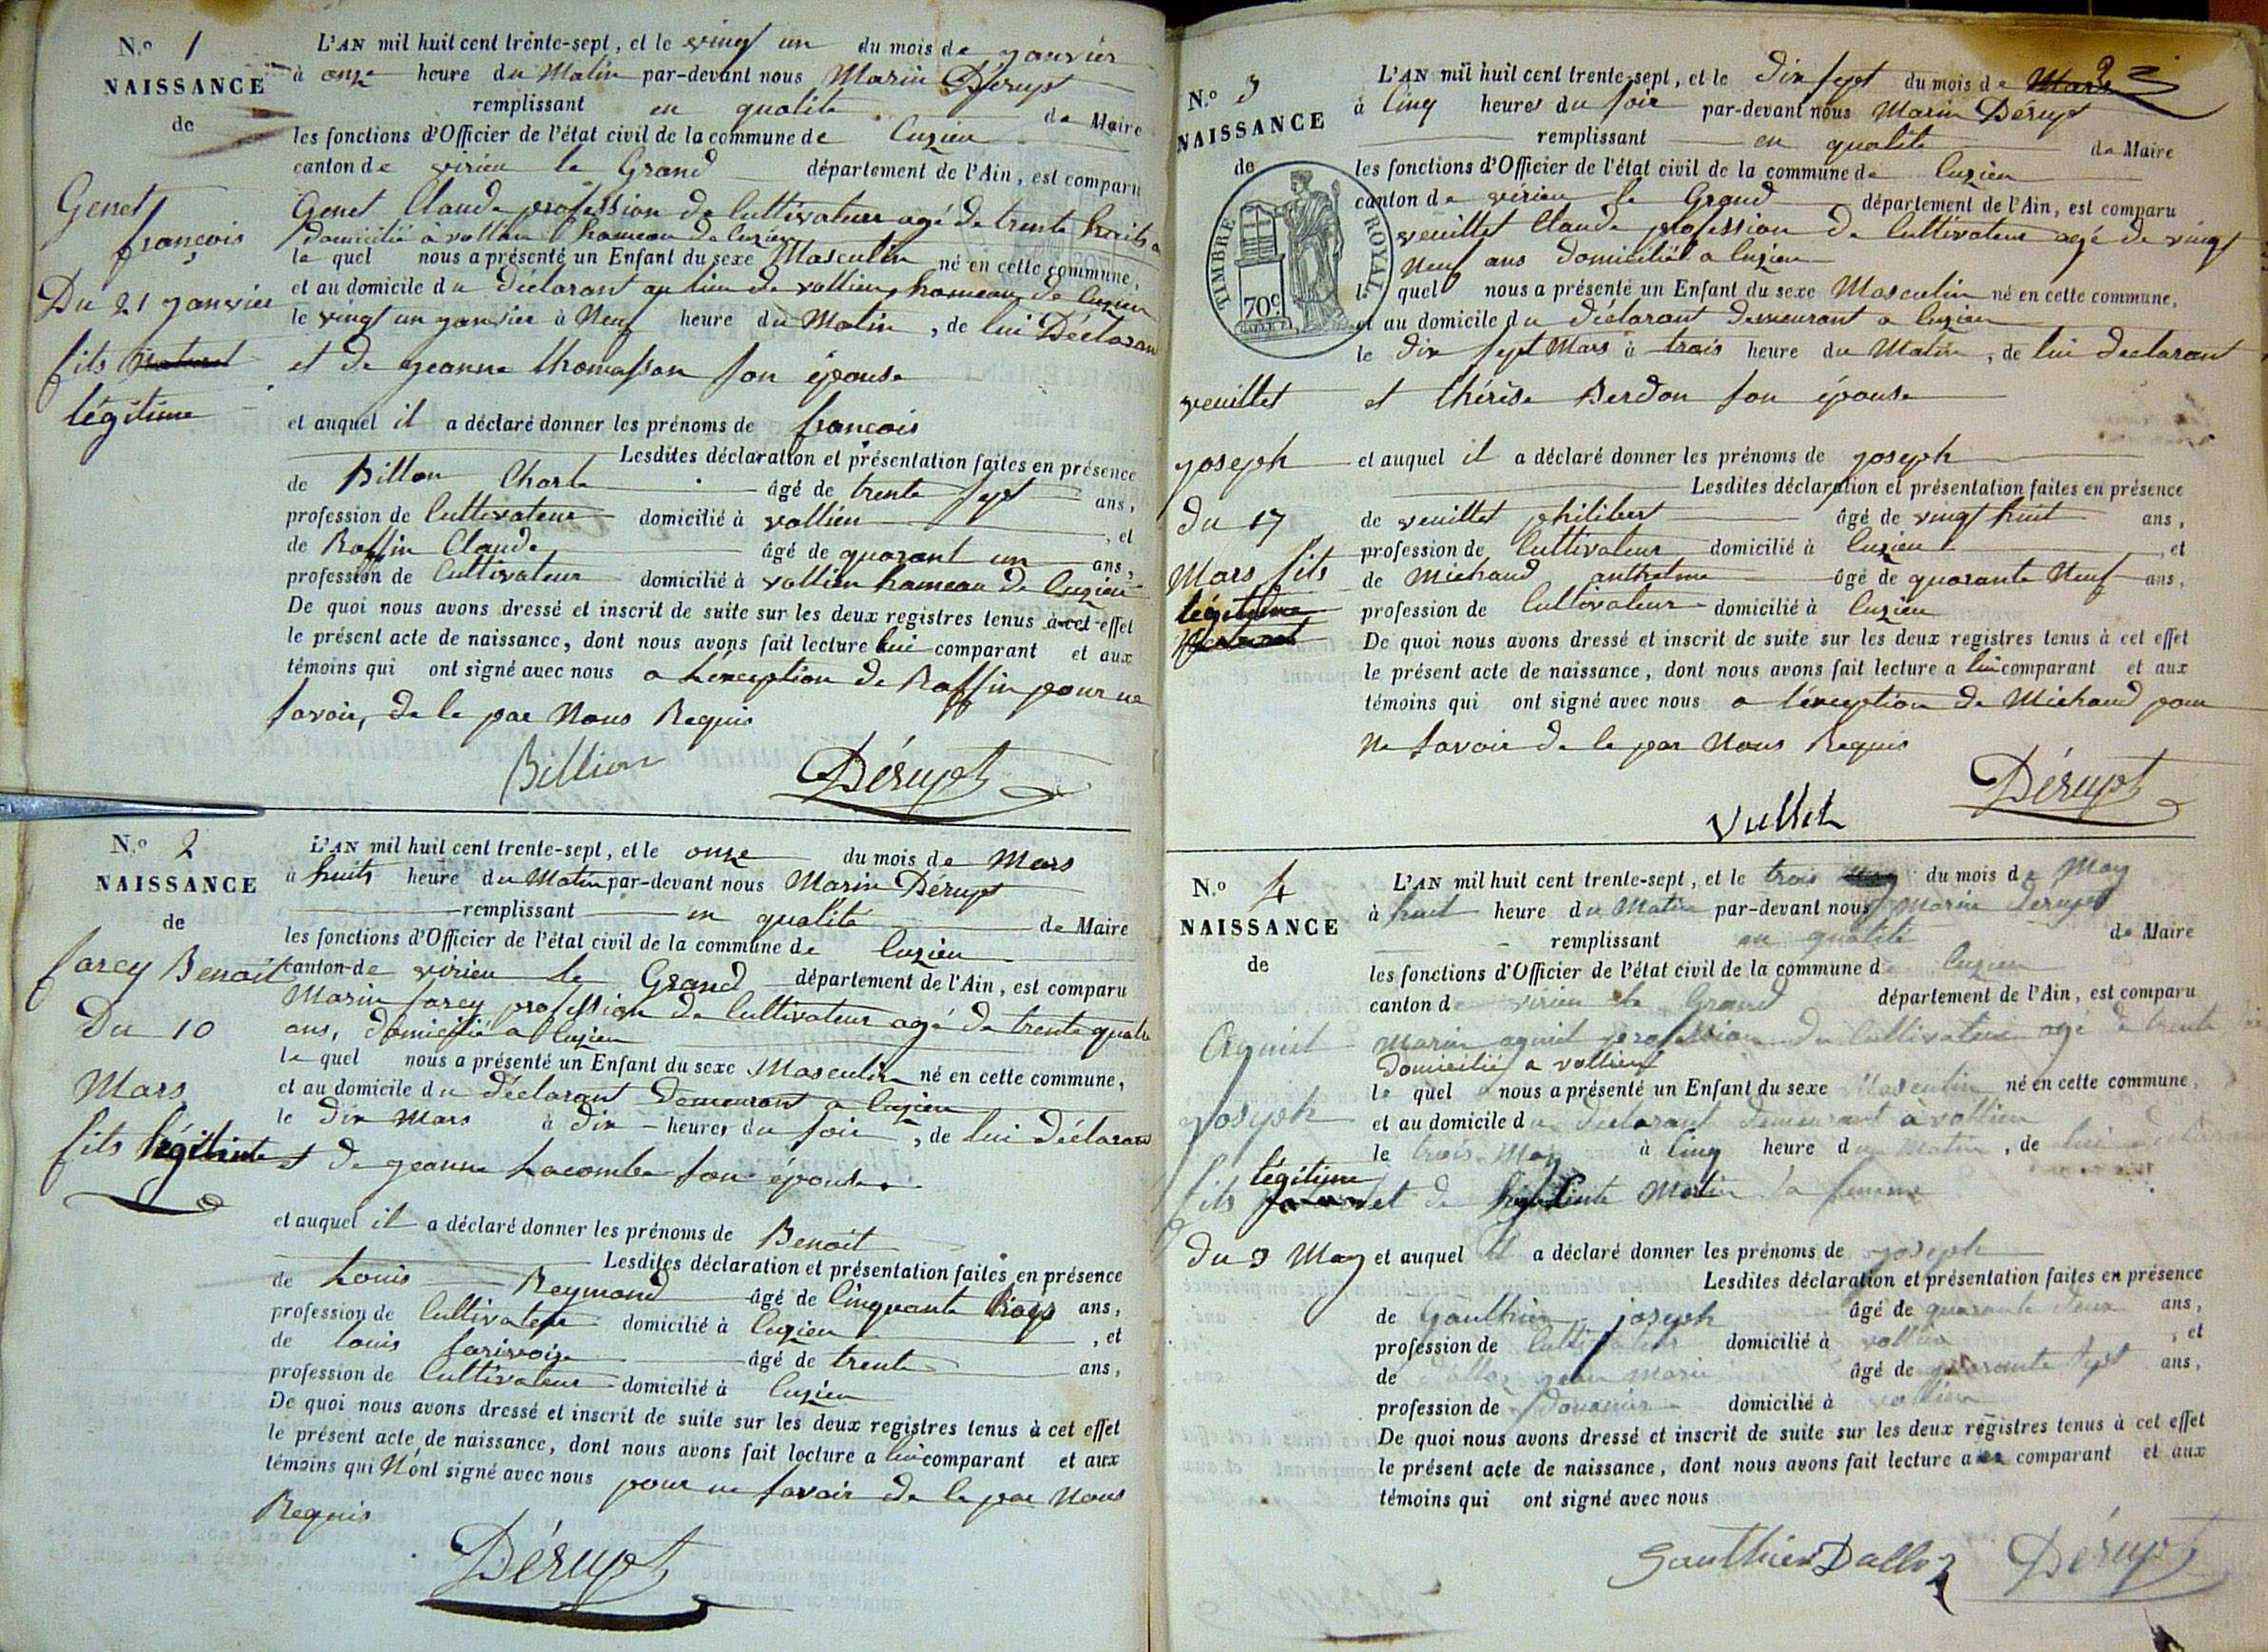 N.o 1
NAISSANCE
de
Genet
françois
Du 21 janvier
fils naturel
légitime
L'AN mil huit cent trente-sept, et le vingt un du mois de janvier
à onze heure du Matin par-devant nous Marin Dérupt
remplissant en qualité de Maire
les fonctions d'Officier de l'état civil de la commune de Cuzieu
canton de virieu le Grand département de l'Ain, est comparu
Genet Claude profession de Cultivateur agé de trente huits a
domicilié à vollien hameau de Cuzieu
le quel nous a présenté un Enfant du sexe Masculin né en cette commune,
et au domicile du déclarant au lieu de vollien hameau de Cuzieu
le vingt un janvier à Neuf heure du Matin, de lui Déclaran
et de jeanne thomasson son épouse
et auquel il a déclaré donner les prénoms de françois
Lesdites déclaration et présentation faites en présence
de Billon Charle âgé de trente sept ans,
profession de Cultivateur domicilié à vollien, et
de Raffin Claude âgé de quarant un ans,
profession de Cultivateur domicilié à vollien hameau de Cuzieu
De quoi nous avons dressé et inscrit de suite sur les deux registres tenus à cet effet
le présent acte de naissance, dont nous avons fait lecture lui comparant et aux
témoins qui ont signé avec nous a L'exception de Raffin pour ne
savoir, de le par Nous Requis
Billion Dérupt
N.o 2
NAISSANCE
de
farcy Benoit
Du 10
Mars
fils légitime
L'AN mil huit cent trente-sept, et le onze du mois de Mars
à huits heure du Matin par-devant nous Marin Dérupt
remplissant en qualité de Maire
les fonctions d'Officier de l'état civil de la commune de Cuzieu
canton de virieu le Grand département de l'Ain, est comparu
Marin farcy profession de Cultivateur agé de trente quatre
ans, domicilié a Cuzieu
le quel nous a présenté un Enfant du sexe Masculin né en cette commune,
et au domicile du déclarant Demeurant a Cuzieu
le dix Mars à dix heures du soir, de lui déclaran
et de jeanne Lacombe son épouse.
et auquel il a déclaré donner les prénoms de Benoit
Lesdites déclaration et présentation faites en présence
de Louis Reymond âgé de Cinquante ans,
profession de Cultivateur domicilié à Cuzieu, et
de Louis âgé de trente ans,
profession de Cultivateur domicilié à Cuzieu
De quoi nous avons dressé et inscrit de suite sur les deux registres tenus à cet effet
le présent acte de naissance, dont nous avons fait lecture a lui comparant et aux
témoins qui N'ont signé avec nous pour ne savoir de le par Nous
Requis
Dérupt
N.o 3
NAISSANCE
de
TIMBRE ROYAL
70c
veuillet
joseph
du 17
Mars fils
légitime
L'AN mil huit cent trente-sept, et le dix sept du mois de Mars
à Cinq heures du soir par-devant nous Marin Dérupt
remplissant en qualité de Maire
les fonctions d'Officier de l'état civil de la commune de Cuzieu
canton de virieu le Grand département de l'Ain, est comparu
veuillet Claude profession de Cultivateur agé de vingt
Neuf ans domicilié a Cuzieu
le quel nous a présenté un Enfant du sexe Masculin né en cette commune,
et au domicile du déclarant demeurant a Cuzieu
le dix sept Mars à trois heure du Matin, de lui declarant
et thérèse Berdon son épouse
et auquel il a déclaré donner les prénoms de joseph
Lesdites déclaration et présentation faites en présence
de veuillet philibert âgé de vingt huit ans,
profession de Cultivateur domicilié à Cuzieu, et
de Michaud anthelme âgé de quarante Neuf ans,
profession de Cultivateur domicilié à Cuzieu
De quoi nous avons dressé et inscrit de suite sur les deux registres tenus à cet effet
le présent acte de naissance, dont nous avons fait lecture a lui comparant et aux
témoins qui ont signé avec nous a l'exception de Michaud pour
Ne savoir de le par Nous Requis
Vullet Dérupt
N.o 4
NAISSANCE
de
Aguiet
joseph
légitime
fils
du 3 May
L'AN mil huit cent trente-sept, et le trois du mois de May
à huit heure du Matin par-devant nous Marin Derupt
remplissant en qualité de Maire
les fonctions d'Officier de l'état civil de la commune de Cuzieu
canton de virieu le Grand département de l'Ain, est comparu
Marin aguiet profession de Cultivateur agé de trente
Domicilié a vollien
le quel nous a présenté un Enfant du sexe Masculin né en cette commune,
et au domicile du declarant demeurant à vollien
le trois May à Cinq heure du Matin, de lui
et de Martin sa femme
et auquel il a déclaré donner les prénoms de joseph
Lesdites déclaration et présentation faites en présence
de Gauthier joseph âgé de quarante deux ans,
profession de Cultivateur domicilié à vollien, et
de Dalloz jean Marie âgé de quarante sept ans,
profession de Douanier domicilié à vollien
De quoi nous avons dressé et inscrit de suite sur les deux registres tenus à cet effet
le présent acte de naissance, dont nous avons fait lecture a comparant et aux
témoins qui ont signé avec nous
Gauthier Dalloz Dérupt